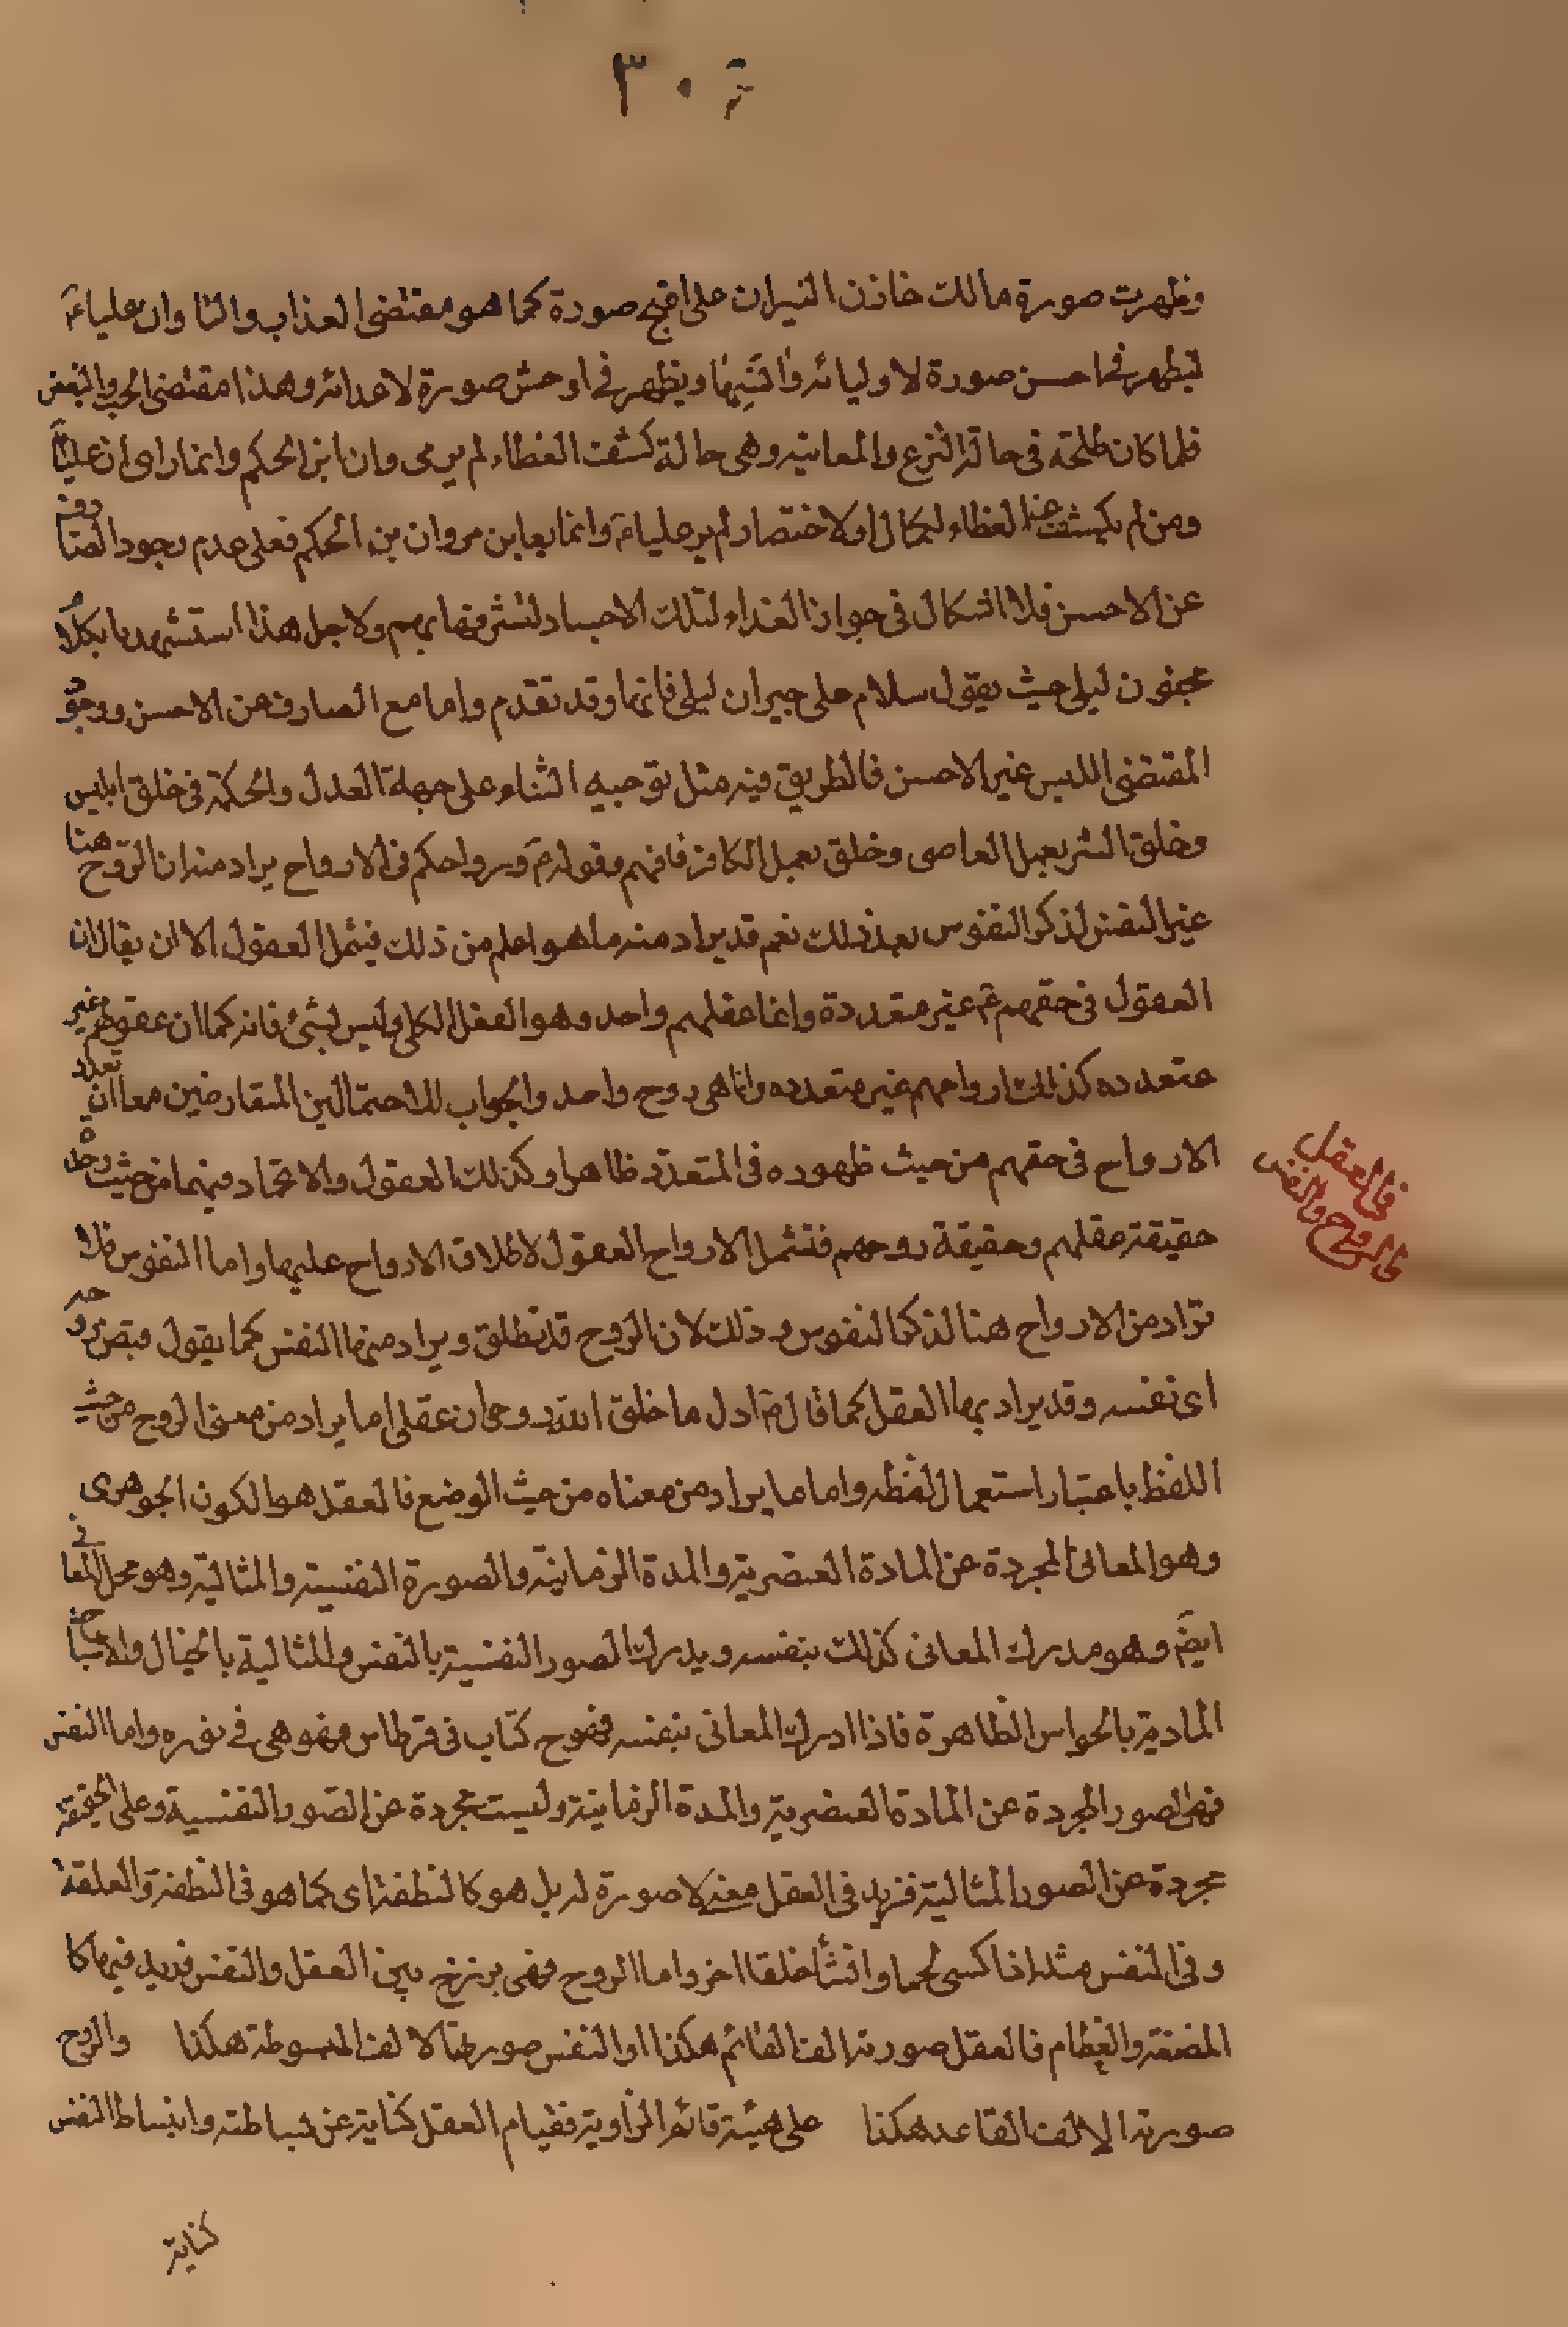 ٣٠٢
وظهرت صورة مالك خازن النيران على اقبح صورة كما هو مقتضى العذاب والنا وان علياءَ
ليظهر فى احسن صورة لاوليائه واتبيها ويظهر فى اوحش صورة لاعدائه وهذا مقتضى الحب والبغض
فلما كان طلحة فى حالة النزع والمعاينه وهى حالة كشف الغطاء لم ير مروان ابن الحكم وانما راى ان عليّا
ومن لم يكشف عنه الغطاء لكمال او لاختصار لم ير علياءَ وانما يعاين مروان بن الحكم فعلى عدم وجود الصارف
عن الاحسن فلا اشكال فى جواز الفداء لتلك الاجساد لتشرفها بهم ولاجل هذا استشهدنا بكلام
مجنون ليلى حيث يقول سلام على جيران ليلى فانها وقد تقدم واما مع الصارف عن الاحسن ووجود
المقتضى اللبس غير الاحسن فالطريق فيه مثل توجيه الثناء على جهة العدل والحكمة فى خلق ابليس
وخلق الشر بعمل العاصى وخلق بعمل الكافر فافهم وقوله مَ وبرواحكم فى الارواح يراد منه ان الرّوح هنا
غير النفس لذكر النفوس بعد ذلك نعم قد يراد منه ما هو اعم من ذلك فيشمل العقول الا ان يقال ان
العقول فى حقهم عَ غير متعددة وانما عقلهم واحد وهو العقل الكلى وليس بشئ فانه كما ان عقولهم غير
متعدده كذلك ارواحهم غير متعدده وانما هى روح واحد والجواب للاحتمالين المتعارضين معا ان تعدد
الارواح فى حقهم من حيث ظهوره فى المتعدّد ظاهرا وكذلك العقول والاتحاد فيهما من حيث وحدة
حقيقة عقلهم وحقيقة روحهم فتشمل الارواح العقول لاطلاق الارواح عليها واما النفوس فلا
تراد من الارواح هنا لذكر النفوس و ذلك لان الروح قد تطلق ويراد منها النفس كما يقول قبض روحه
اى نفسه وقد يراد بها العقل كما قال مَ اول ما خلق الله روحى ان عقلى اما يراد من معنى الروح من حيث
اللفظ باعتبار استعمال لفظه واما ما يراد من معناه من حيث الوضع فالعقل هو الكون الجوهرى
وهو المعانى المجردة عن المادة العنصرية والمدة الزمانية والصورة النفسية والمثالية وهو محل المعانى
ايضَ وهو مدرك المعانى كذلك بنفسه ويدرك الصور النفسية بالنفس والمثالية بالخيال والاشباح
المادية بالحواس الظاهرة فاذا ادرك المعانى بنفسه فهو ح كتاب فى قرطاس فهو هى فى نفوره واما النفس
فهى الصور المجردة عن المادة العنصرية والمدة الزمانية وليست مجردة عن الصّور النفسية وعلى الحقيقة
مجردة عن الصور المثالية فزيد فى العقل معنى لا صورة له بل هو كالنطفة اى كما هو فى النطفة والعلقة
وفى النفس مثله اذا كسى لحما وانشأ خلقا اخر واما الروح فهى برزخ بين العقل والنفس فزيد فيها كا
المضغة والعظام فالعقل صورته الف القائم هكذا ا والنفس صورتها الالف المبسوطة هكذا والروح
صورته الالف القاعد هكذا على هيئة قائم الزاوية فقيام العقل كناية عن بساطته وانبساط النفس
كناية
فى العقل
والروح والنفس